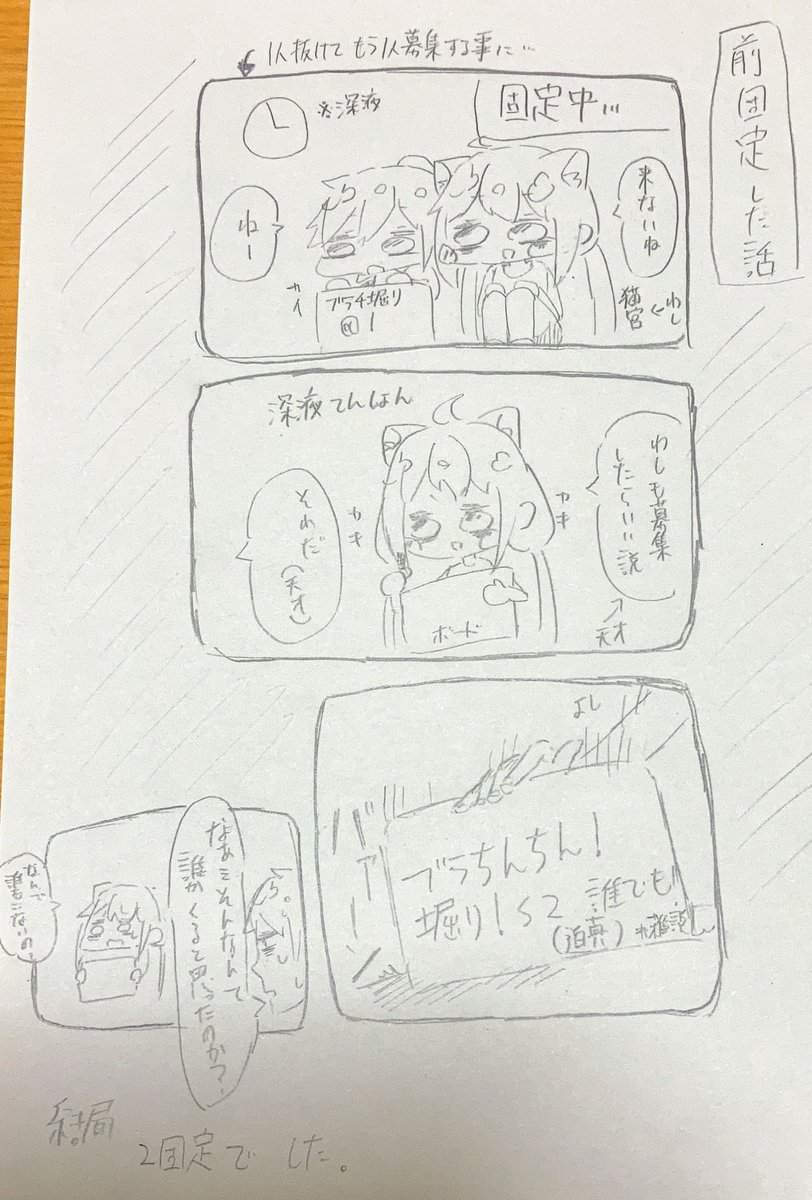 前固定した話
1人抜けてもう1人募集する事に…
固定中…
※深夜
来ないね
わし
猫宮
ねー
カイ
ブラチ堀り
@1
深夜てんしょん
わしも募集
したらいい説
天才
カキ
カキ
それだ(天才)
ボード
よし
バァーン
ブラちんちん!
堀り!S2 誰でも!
(迫真)
なあそんなんで
誰かくると思ったのか?
なんで
誰もこないの
結局
2固定でした。